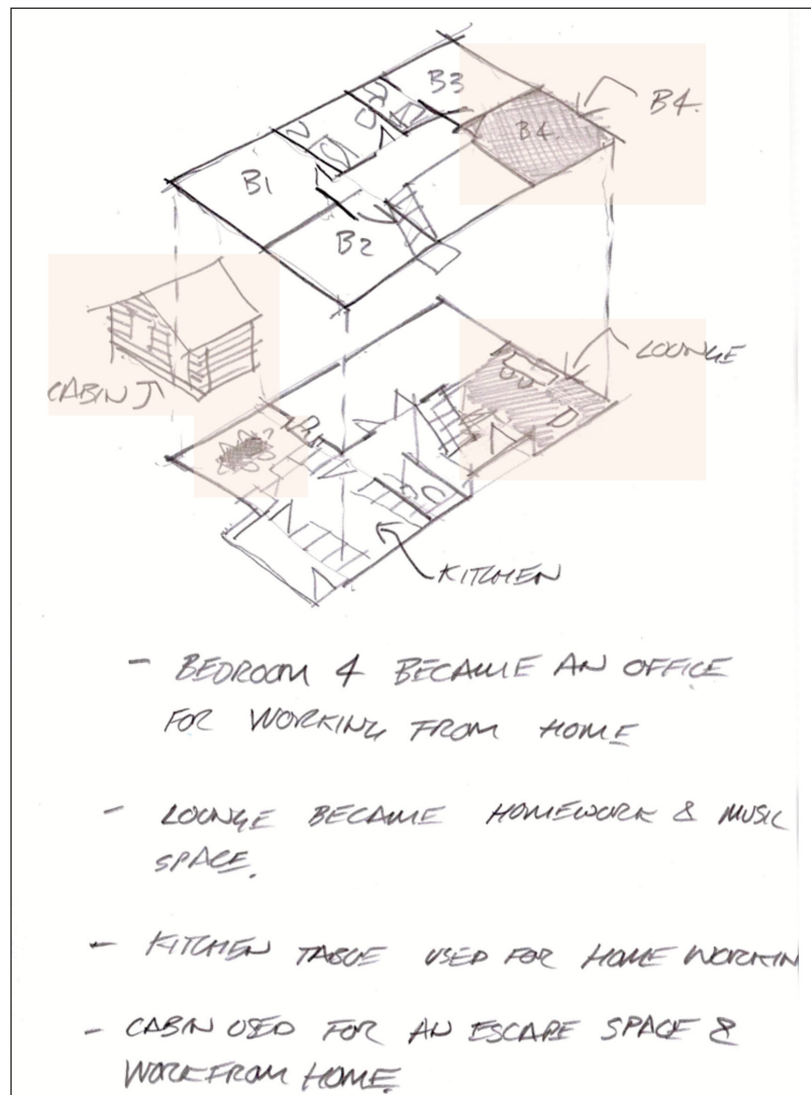 B3
B4.
B4.
B1
B2
LOUNGE
CABIN
KITCHEN
- BEDROOM 4 BECAME AN OFFICE
FOR WORKING FROM HOME
- LOUNGE BECAME HOMEWORK & MUSIC
SPACE.
- KITCHEN TABLE USED FOR HOME WORKIN
- CABIN USED FOR AN ESCAPE SPACE &
WORK FROM HOME.